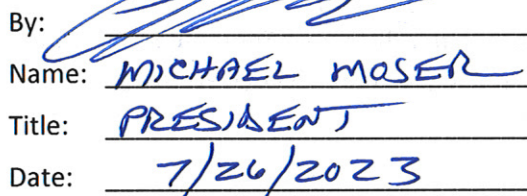 By:
Name: MICHAEL MOSER
Title: PRESIDENT
Date: 7/26/2023